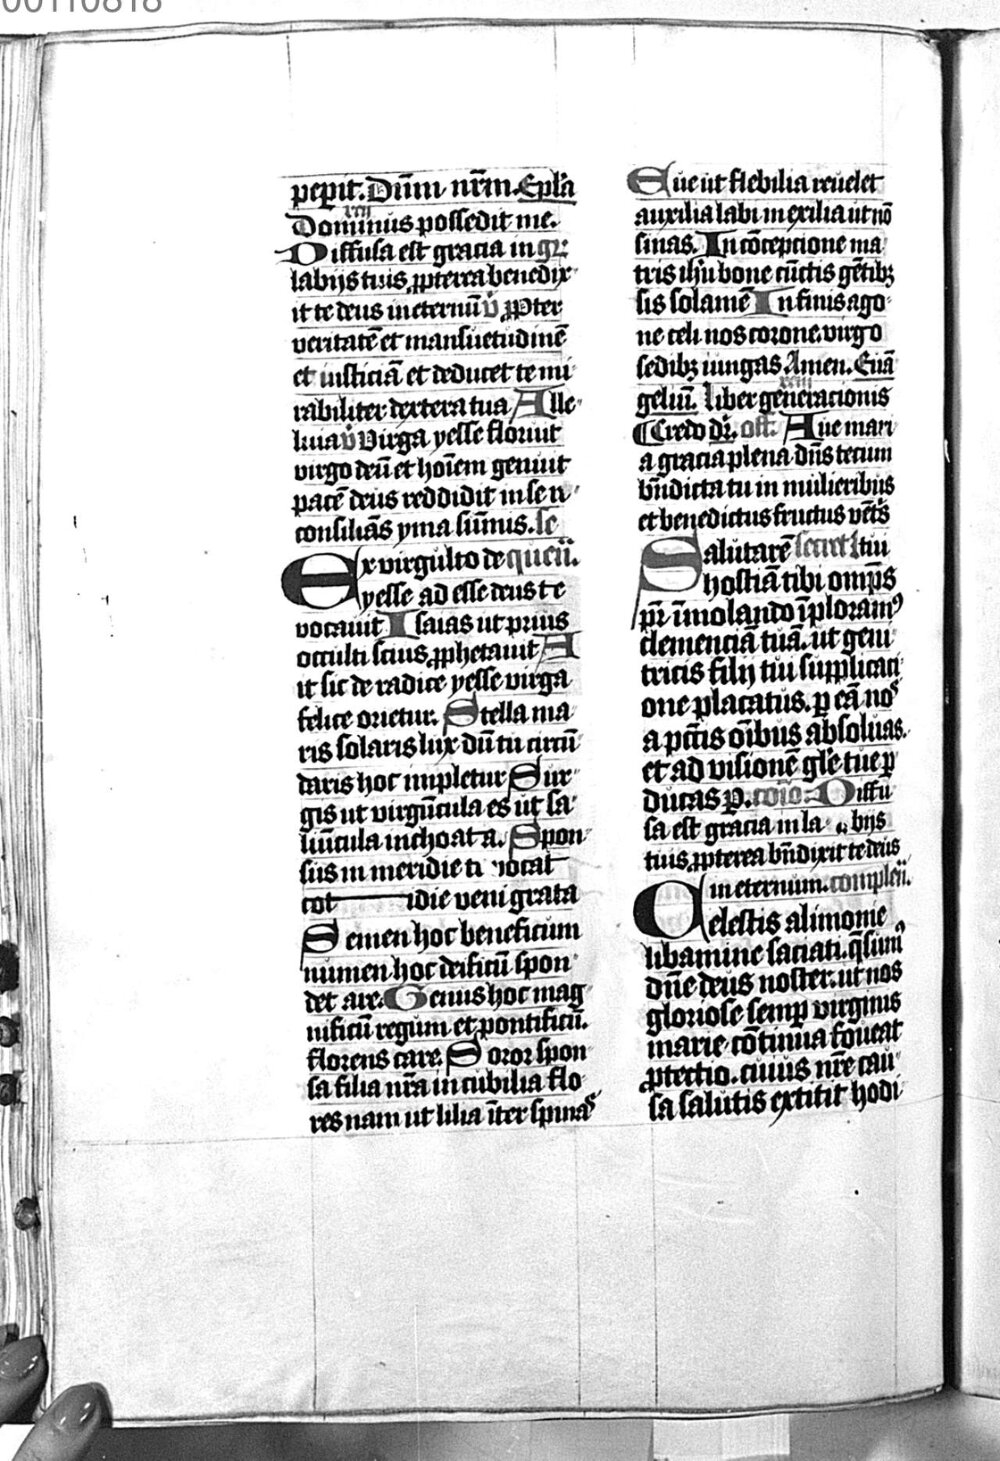 00110818
pepit. Dūm nrm̄. Epl̄a
Dominus possedit me.
xciij
Diffusa est gracia in gr̄
labijs tuis, ꝓpterea benedix
it te deus in eternū v̊ ꝓpter
veritatē et mansuetudinē
et iusticiā et deducet te mi
rabiliter dextera tua Alle
luia v̊ Virga yesse floruit
virgo deū et hoīem genuit
pacē deus reddidit in se re
consiliās yma sūmus. se
Ex virgulto de quēn̄.
yesse ad esse deus te
vocauit Isaias ut prius
occulti scius ꝓphetauit A
it sic de radice yesse virga
felice orietur. Stella ma
ris solaris lux dū tu circū
daris hoc impletur Sur
gis ut virgūcula es ut sa
liūcula inchoata. Spon
sus in meridie te vocat
cot idie veni grata
Semen hoc beneficum
numen hoc deificū spon
det aue. Genus hoc mag
nificū regum et pontificū.
florens caue. Soror spon
sa filia nrā in cubilia flo
res nam ut lilia īter spinas
Eue ut flebilia reuelet
auxilia labi in exilia ut nō
sinas. In cōcepcione ma
tris ihū bone cūctis gētibꝫ
sis solamē In finis ago
ne celi nos corone. virgo
sedibꝫ iungas. Amen. Euā
geliū. Liber generacionis
xciij
Credo dr̄. off. Aue mari
a gracia plena dn̄s tecum
bn̄dicta tu in mulieribus
et benedictus fructus vēt̄s
Salutarē secret tui
hostiā tibi omp̄s
pr̄ īmolando īploramꝰ
clemenciā tuā. ut geni
tricis filij tui supplicaci
one placatus. ꝑ eā nos
a pctīs oībus absoluas.
et ad visionē gl̄e tue ꝑ
ducas ꝑ. cōio. Diffu
sa est gracia in la bijs
tuis, ꝓpterea bn̄dixit te deus
in eternum. complen̄.
Celestis alimonie
libamine saciati. q̄sumꝰ
dn̄e deus noster. ut nos
gloriose semꝑ virginis
marie cōtinua foueat
ꝓtectio. cuius nr̄e cau
sa salutis extitit hodi